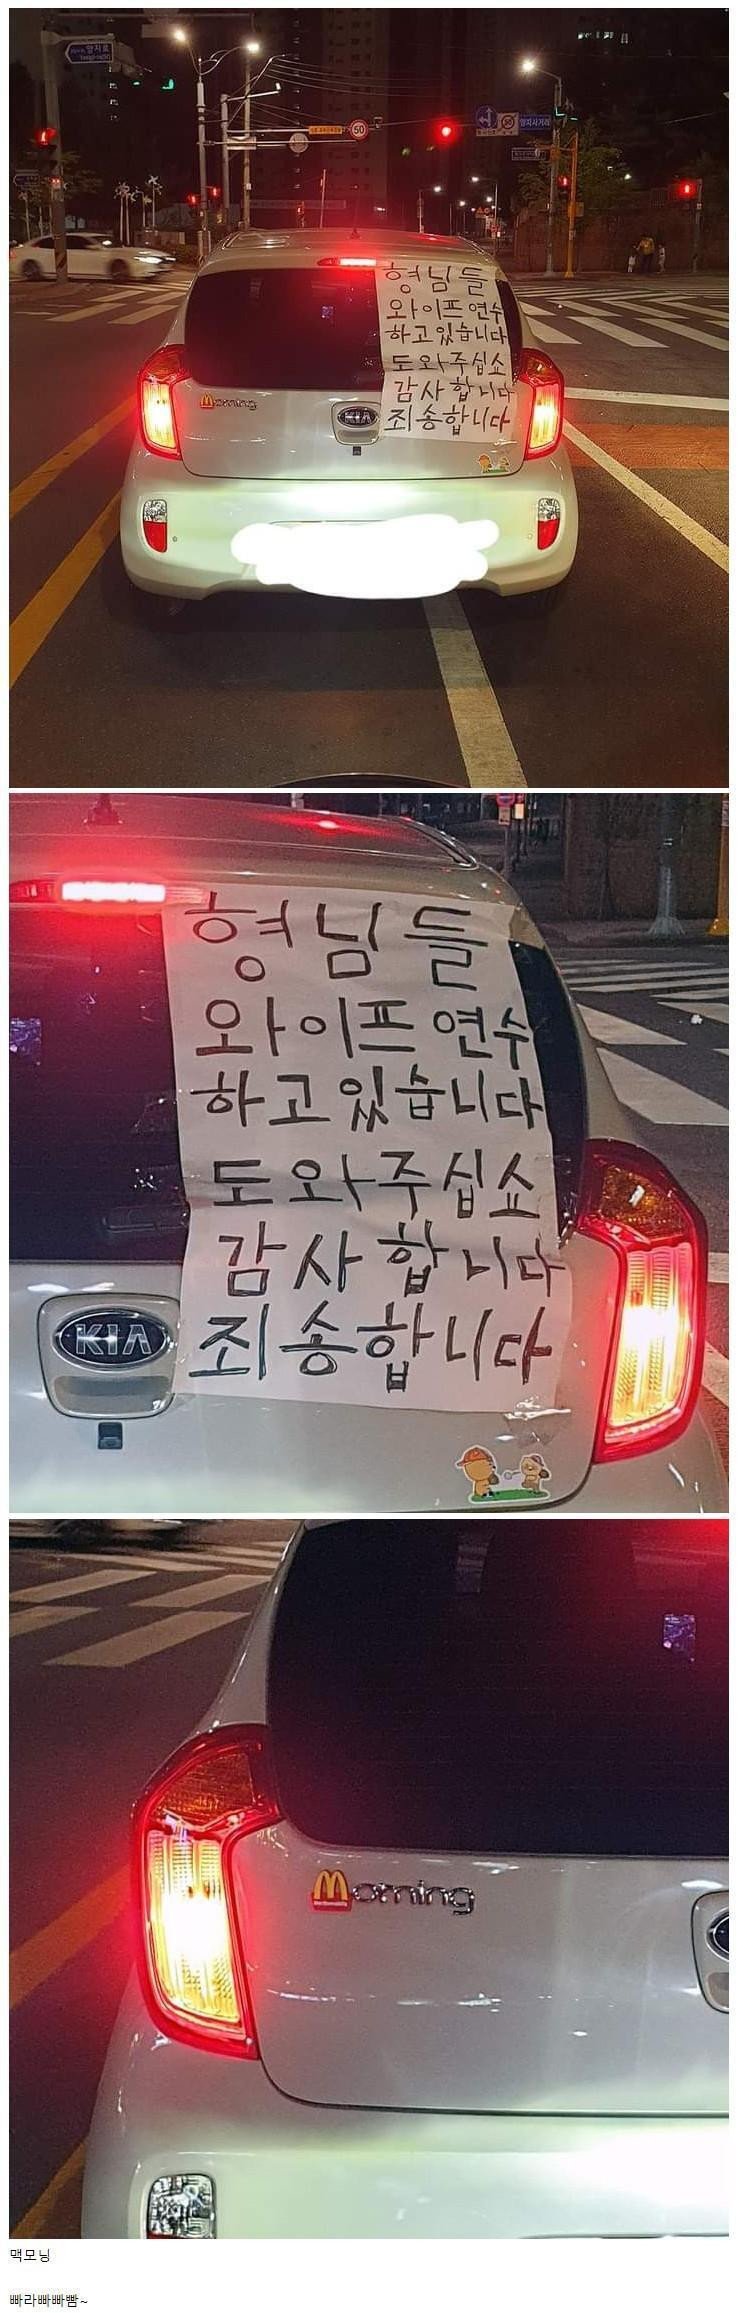 양지로
50
양지사거리
형님들
와이프 연수
하고 있습니다
도와주십쇼
감사합니다
죄송합니다
Morning
KIA
형님들
와이프 연수
하고 있습니다
도와주십쇼
감사합니다
죄송합니다
KIA
Morning
맥모닝
빠라빠빠빰~